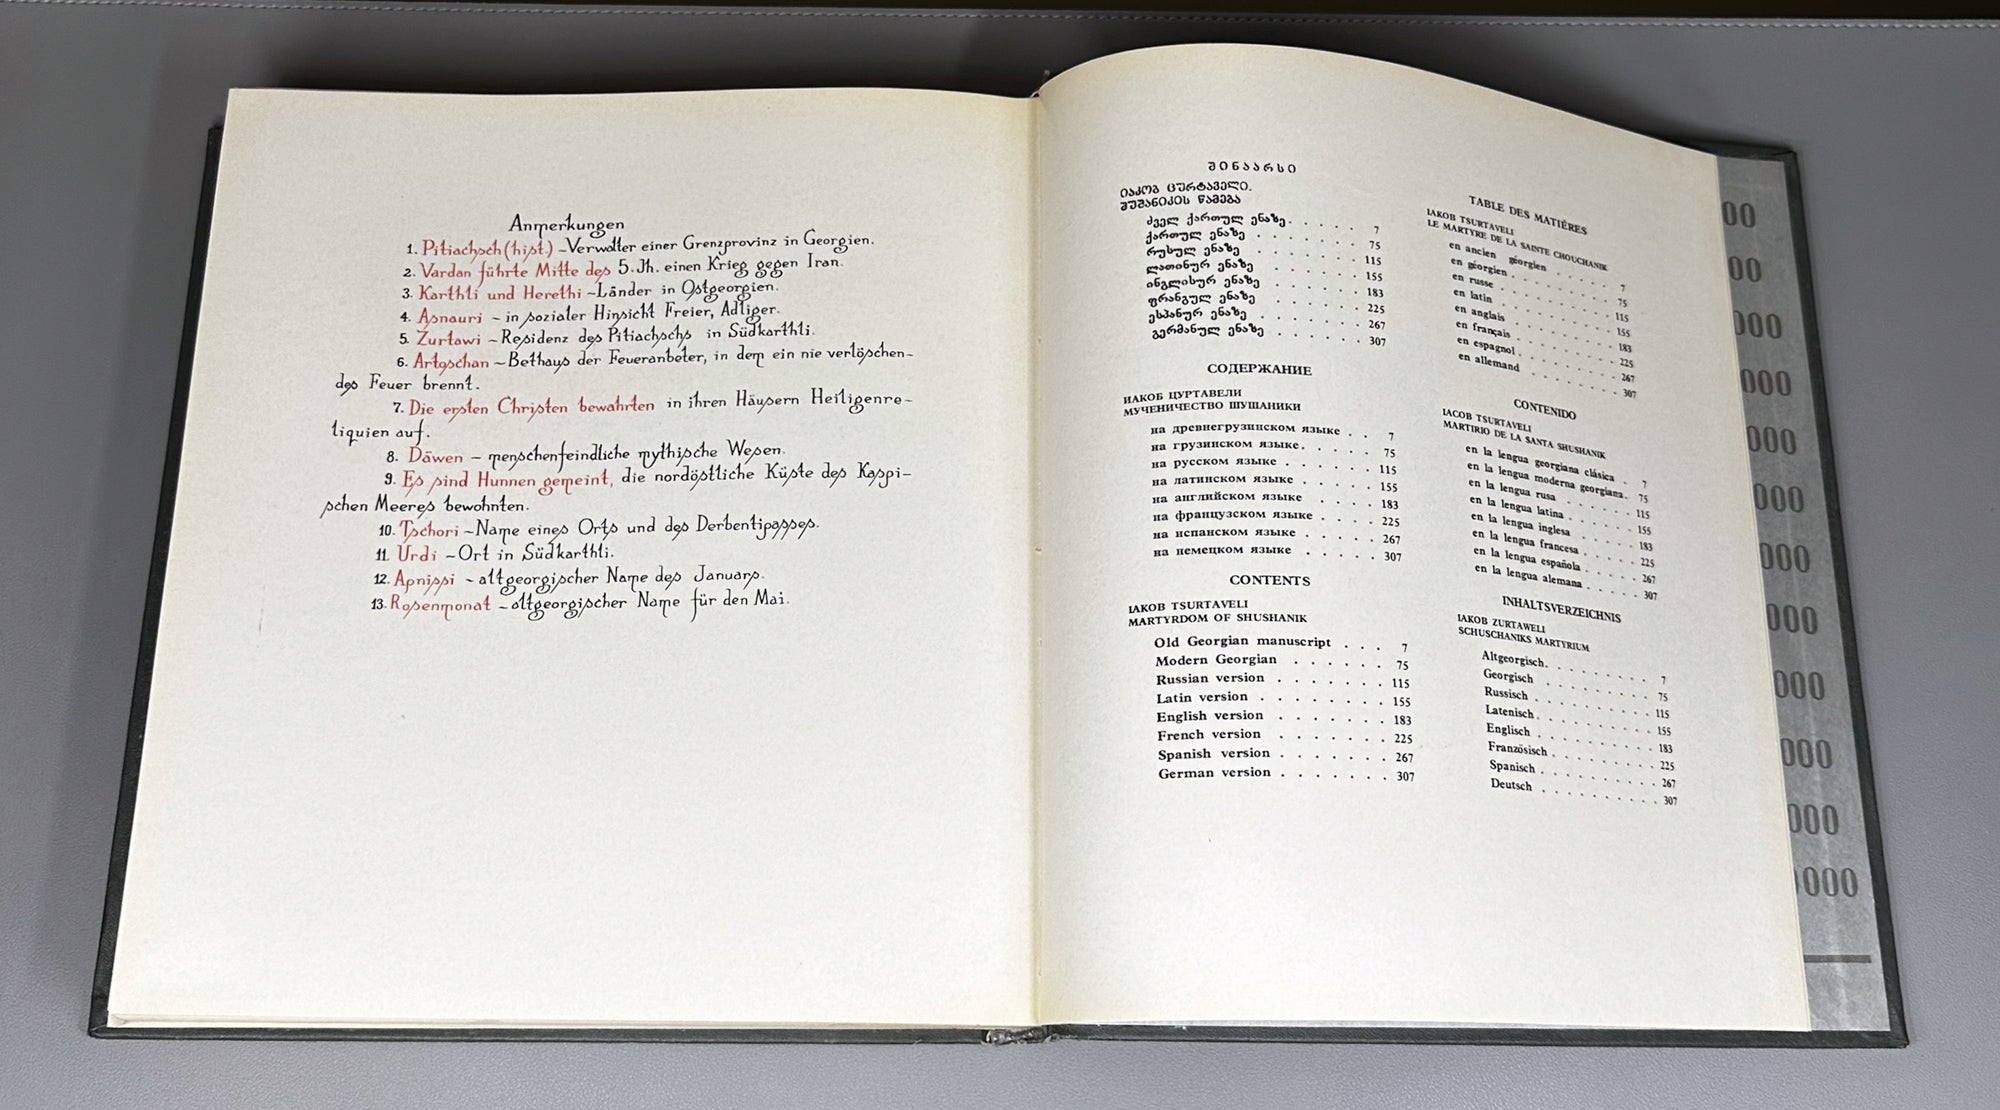 Anmerkungen
1. Pitiachsch (hist.) – Verwalter einer Grenzprovinz in Georgien.
2. Vardan führte Mitte des 5. Jh. einen Krieg gegen Iran.
3. Karthli und Herethi – Länder in Ostgeorgien.
4. Asnauri – in sozialer Hinsicht Freier, Adliger.
5. Zurtawi – Residenz des Pitiachschs in Südkarthli.
6. Artoschan – Bethaus der Feueranbeter, in dem ein nie verlöschen-
des Feuer brennt.
7. Die ersten Christen bewahrten in ihren Häusern Heiligenre-
liquien auf.
8. Däwen – menschenfeindliche mythische Wesen.
9. Es sind Hunnen gemeint, die nordöstliche Küste des Kaspi-
schen Meeres bewohnten.
10. Tschori – Name eines Orts und des Derbentpasses.
11. Urdi – Ort in Südkarthli.
12. Apnissi – altgeorgischer Name des Januars.
13. Rosenmonat – altgeorgischer Name für den Mai.
შინაარსი
იაკობ ცურტაველი.
შუშანიკის წამება
ძველ ქართულ ენაზე. . . . . . 7
ქართულ ენაზე . . . . . . . 75
რუსულ ენაზე . . . . . . . 115
ლათინურ ენაზე . . . . . . 155
ინგლისურ ენაზე . . . . . . 183
ფრანგულ ენაზე . . . . . . 225
ესპანურ ენაზე . . . . . . 267
გერმანულ ენაზე . . . . . . 307
СОДЕРЖАНИЕ
ИАКОБ ЦУРТАВЕЛИ
МУЧЕНИЧЕСТВО ШУШАНИКИ
на древнегрузинском языке . . 7
на грузинском языке. . . . . 75
на русском языке . . . . . . 115
на латинском языке . . . . . 155
на английском языке . . . . 183
на французском языке . . . . 225
на испанском языке . . . . . 267
на немецком языке . . . . . 307
CONTENTS
IAKOB TSURTAVELI
MARTYRDOM OF SHUSHANIK
Old Georgian manuscript . . . 7
Modern Georgian . . . . . . 75
Russian version . . . . . . . 115
Latin version . . . . . . . . 155
English version . . . . . . . 183
French version . . . . . . . 225
Spanish version . . . . . . . 267
German version . . . . . . . 307
TABLE DES MATIÈRES
IAKOB TSURTAVELI
LE MARTYRE DE LA SAINTE CHOUCHANIK
en ancien géorgien . . . . . 7
en géorgien . . . . . . . . 75
en russe . . . . . . . . . 115
en latin . . . . . . . . . 155
en anglais . . . . . . . . 183
en français . . . . . . . . 225
en espagnol . . . . . . . . 267
en allemand . . . . . . . . 307
CONTENIDO
IACOB TSURTAVELI
MARTIRIO DE LA SANTA SHUSHANIK
en la lengua georgiana clásica . 7
en la lengua moderna georgiana. 75
en la lengua rusa . . . . . . 115
en la lengua latina . . . . . . 155
en la lengua inglesa . . . . . 183
en la lengua francesa . . . . . 225
en la lengua española . . . . . 267
en la lengua alemana . . . . . 307
INHALTSVERZEICHNIS
IAKOB ZURTAWELI
SCHUSCHANIKS MARTYRIUM
Altgeorgisch. . . . . . . . 7
Georgisch . . . . . . . . 75
Russisch . . . . . . . . . 115
Latenisch. . . . . . . . . 155
Englisch . . . . . . . . . 183
Französisch . . . . . . . . 225
Spanisch . . . . . . . . . 267
Deutsch . . . . . . . . . 307